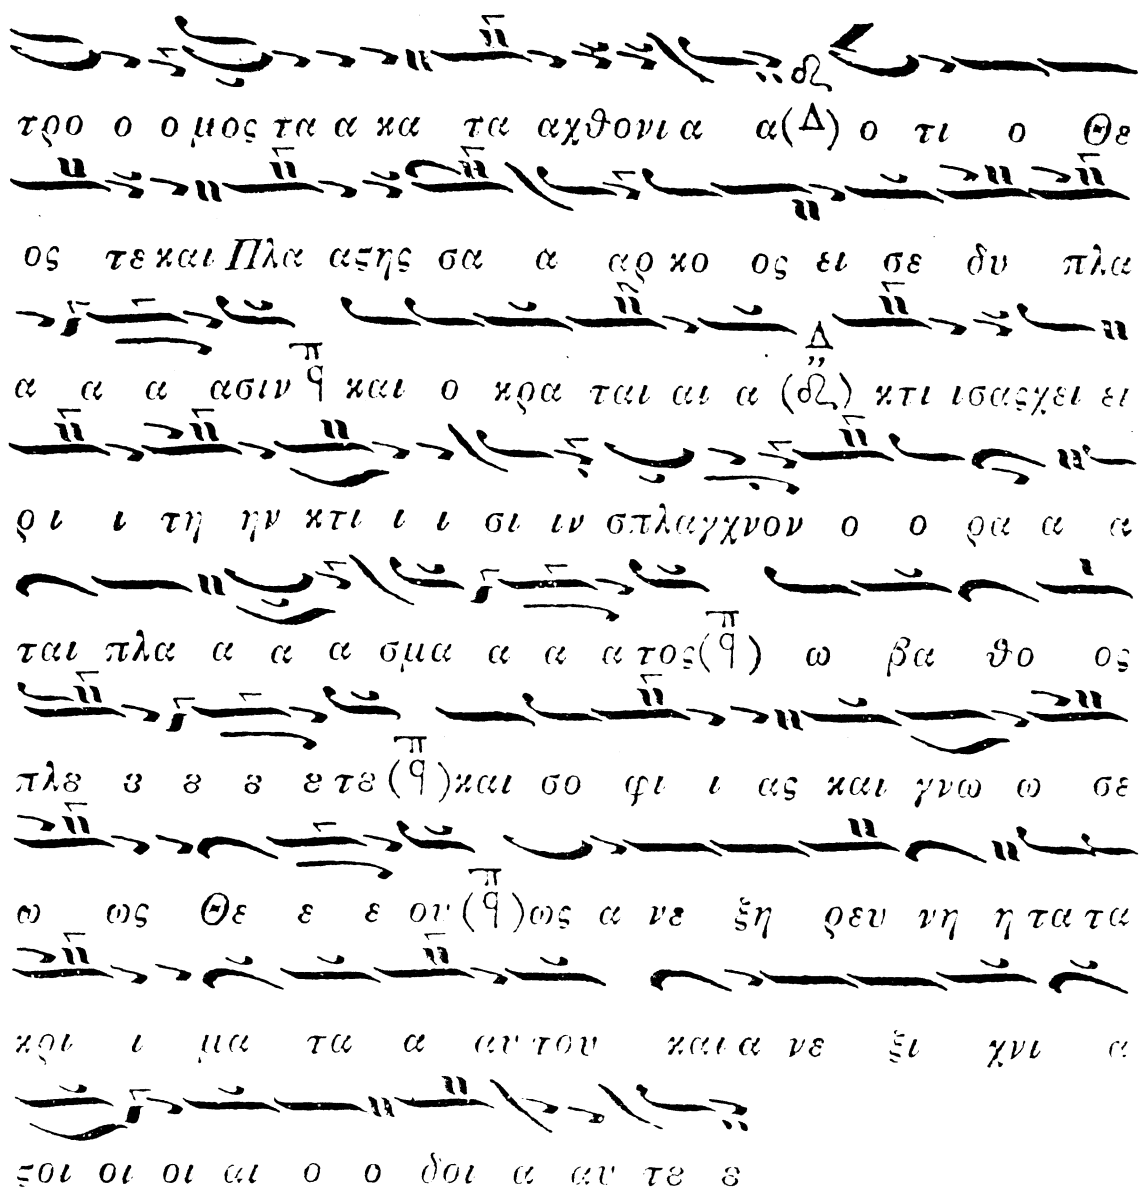 τρο ο ο μος τα α κα τα αχθονι α α(Δ) ο τι ο Θε
ος τε και Πλα αςης σα α αρ κο ος ει σε δυ πλα
α α α ασιν π q και ο κρα ται αι α (Δ) κτι ισας χει ει
ρι ι τη ην κτι ι ι σι ιν σπλαγχνον ο ο ρα α α
ται πλα α α α σμα α α α τος(π q) ω βα θο ος
πλȣ ȣ ȣ ȣ ȣ τε(π q)και σο φι ι ας και γνω ω σε
ω ως Θε ε ε ου(π q)ως α νε ξη ρευ νη η τα τα
κρι ι μα τα α αυ του και α νε ξι χνι α
ςοι οι οι αι ο ο δοι α αυ τȣ ȣ